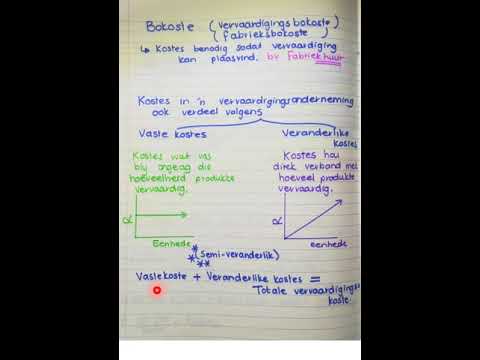 Bokoste (vervaardigingsbokoste)
(fabrieksbokoste)
↳ Kostes benodig sodat vervaardiging
kan plaasvind. bv Fabriekhuur
Kostes in 'n vervaardigingsonderneming
ook verdeel volgens
Vaste kostes
Veranderlike
kostes
Kostes wat vas
bly ongeag die
hoeveelheid produkte
vervaardig.
Kostes hou
direk verband met
hoeveel produkte
vervaardig.
R
Eenhede
R
eenhede
(Semi-veranderlik)
Vastekoste + Veranderlike kostes =
Totale vervaardigings
koste